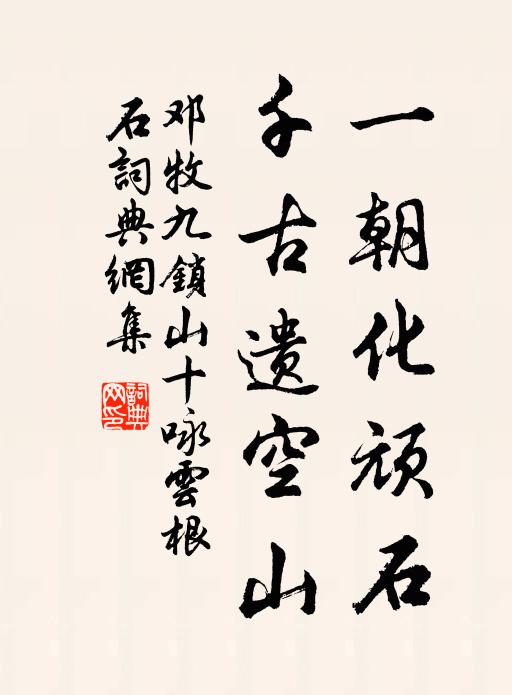 一朝化頑石
千古遺空山
邓牧九鎖山十咏雲根
石詞典網集
詞典
网印